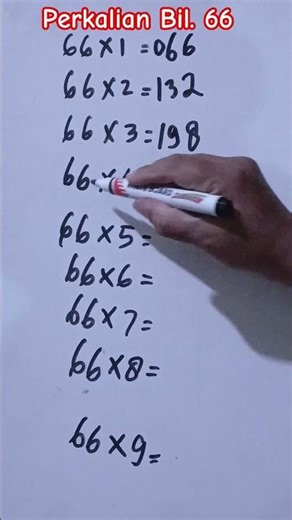 Perkalian Bil. 66
66×1=066
66×2=132
66×3=198
66×
66×5=
66×6=
66×7=
66×8=
66×9=